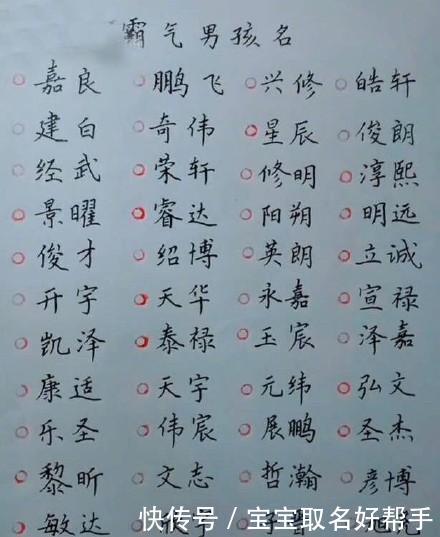 霸气男孩名
嘉良 鹏飞 兴修 皓轩
建白 奇伟 星辰 俊朗
经武 荣轩 修明 淳熙
景曜 睿达 阳朔 明远
俊才 绍博 英朗 立诚
开宇 天华 永嘉 宣禄
凯泽 泰禄 玉宸 泽嘉
康适 天宇 元纬 弘文
乐圣 伟宸 展鹏 圣杰
黎昕 文志 哲瀚 彦博
敏达
快传号/宝宝取名好帮手